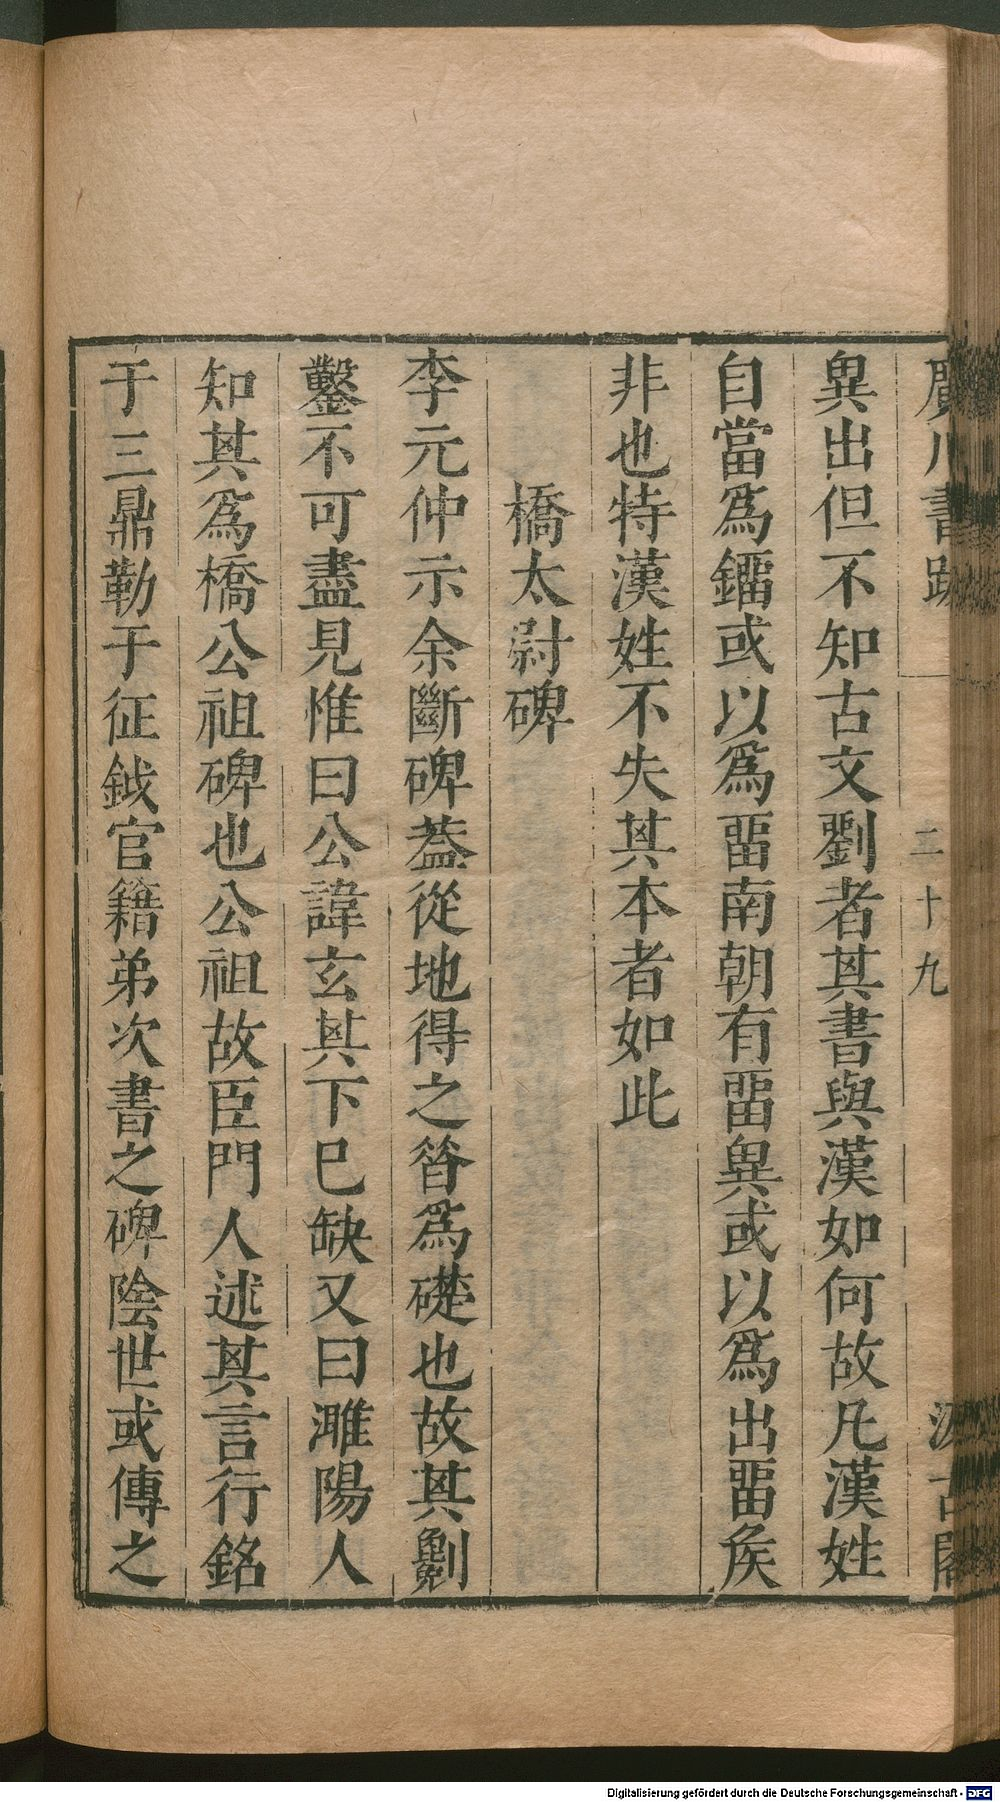 廣川書跋 二十九 汲古閣
異出但不知古文劉者其書與漢如何故凡漢姓
自當爲鐂或以爲畱南朝有畱異或以爲出畱矦
非也特漢姓不失其本者如此
橋太尉碑
李元仲示余斷碑葢從地得之昝爲礎也故其劖
鑿不可盡見惟曰公諱玄其下已缺又曰濉陽人
知其爲橋公祖碑也公祖故臣門人述其言行銘
于三鼎勒于征鉞官籍弟次書之碑陰世或傳之
Digitalisierung gefördert durch die Deutsche Forschungsgemeinschaft - DFG